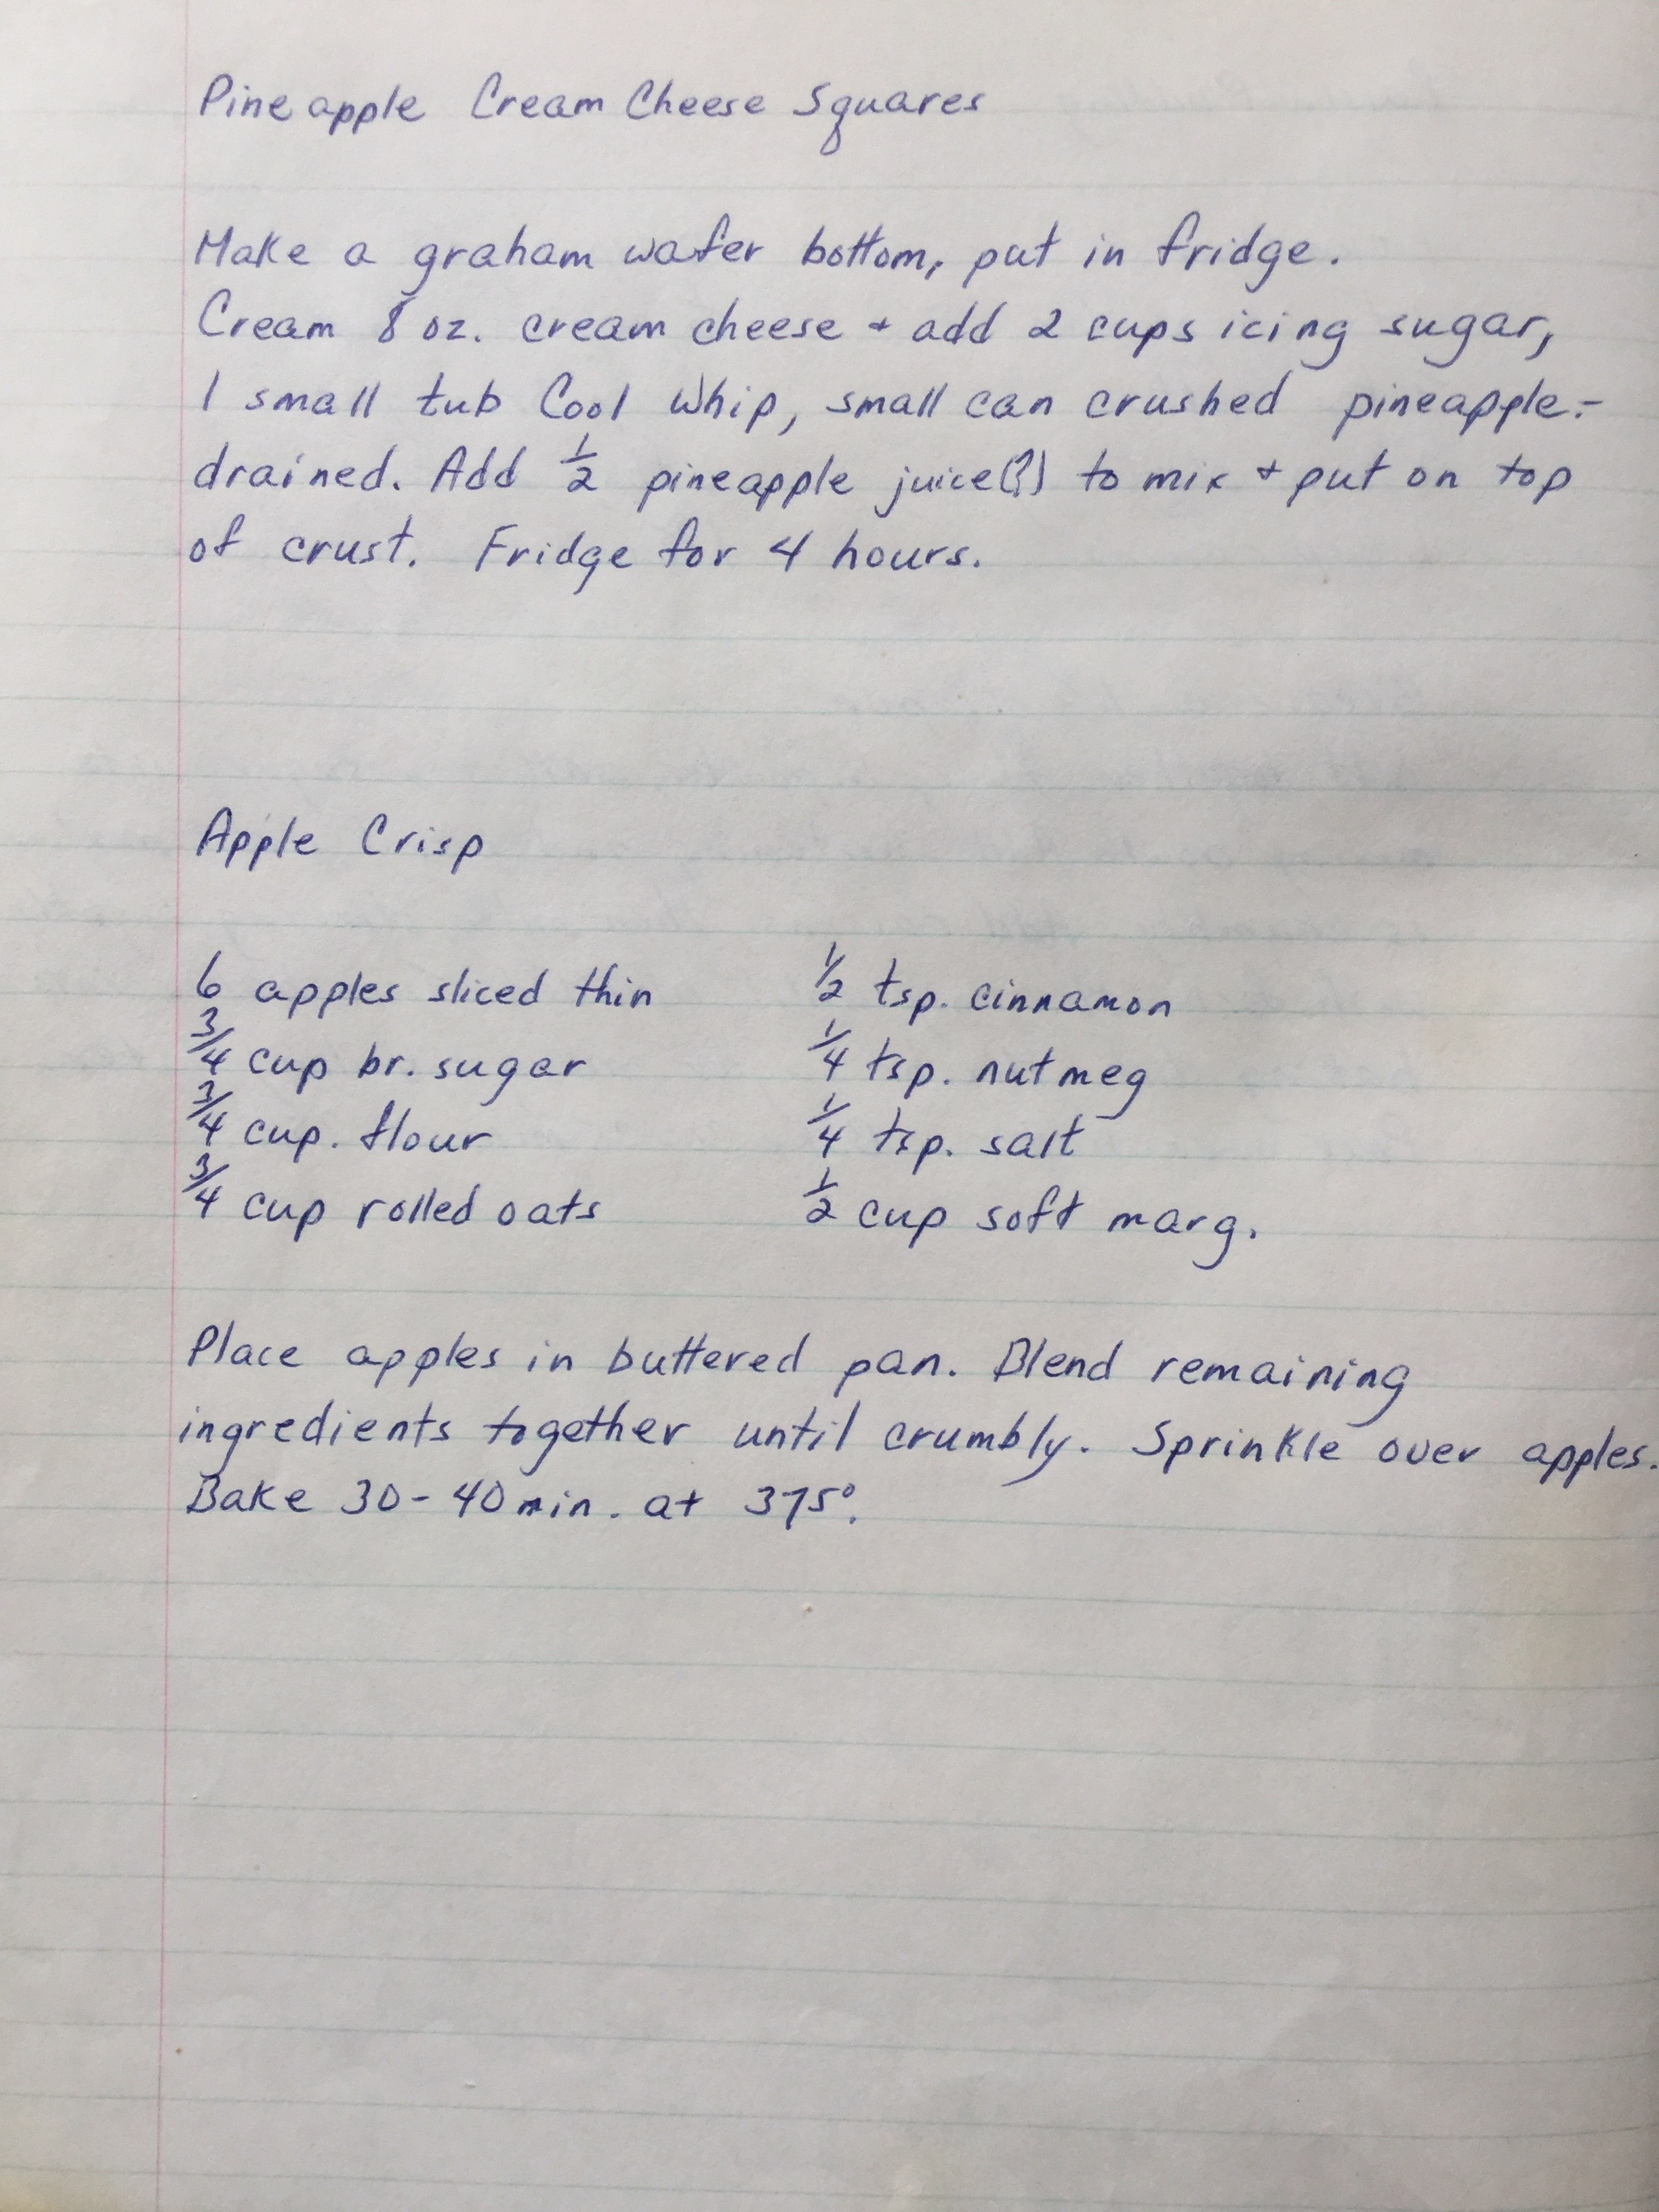 Pineapple Cream Cheese Squares
Make a graham wafer bottom, put in fridge.
Cream 8 oz. cream cheese + add 2 cups icing sugar,
1 small tub Cool Whip, small can crushed pineapple -
drained. Add 1/2 pineapple juice(?) to mix + put on top
of crust. Fridge for 4 hours.
Apple Crisp
6 apples sliced thin
3/4 cup br. sugar
3/4 cup. flour
3/4 cup rolled oats
1/2 tsp. cinnamon
1/4 tsp. nutmeg
1/4 tsp. salt
1/2 cup soft marg.
Place apples in buttered pan. Blend remaining
ingredients together until crumbly. Sprinkle over apples.
Bake 30-40 min. at 375°.